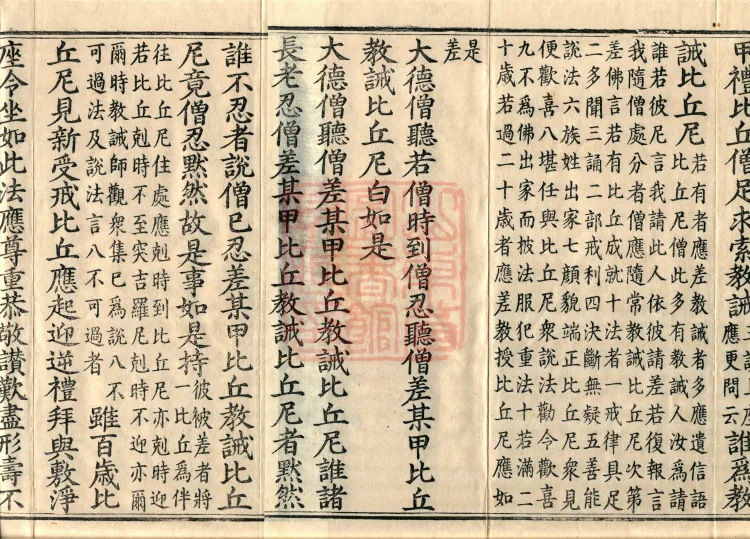 甲禮比丘僧足求索教誡三說
座應更問云誰爲教
誡比丘尼
若有者應差教誡者多應遣信語
比丘尼僧此多有教誡人汝爲請
誰若彼尼言我請此人依彼請差若復報言
我隨僧處分者僧應隨常教誡比丘尼次第
差佛言若有比丘成就十法者一戒律具足
二多聞三誦二部戒利四決斷無疑五善能
說法六族姓出家七顏貌端正比丘尼衆見
便歡喜八堪任與比丘尼衆說法勸令歡喜
九不爲佛出家而披法服犯重法十若滿二
十歲若過二十歲者應差教授比丘尼應如
是
差
大德僧聽若僧時到僧忍聽僧差某甲比丘
教誡比丘尼白如是
大德僧聽僧差某甲比丘教誡比丘尼誰諸
長老忍僧差某甲比丘教誡比丘尼者黙然
誰不忍者說僧已忍差某甲比丘教誡比丘
尼竟僧忍黙然故是事如是持
彼被差者將
一比丘爲伴
往比丘尼住處應剋時到比丘尼亦剋時迎
若比丘剋時不至突吉羅尼剋時不迎亦爾
爾時教誡師觀衆集已爲說八不
可過法及說法言八不可過者
雖百歲比
丘尼見新受戒比丘應起迎逆禮拜與敷淨
座令坐如此法應尊重恭敬讃歎盡形壽不